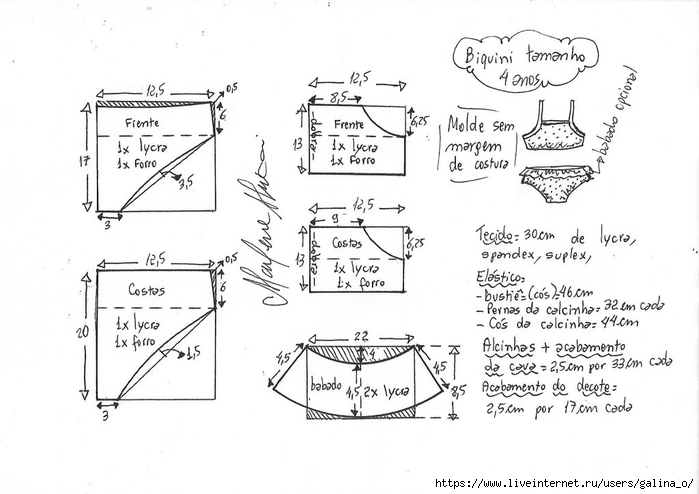 Biquini tamanho
4 anos
Molde sem
margem
de costura
babado opcional
12,5
0,5
6
17
Frente
1x lycra
1x forro
3,5
3
12,5
8,5
6,25
13
dobra
Frente
1x lycra
1x forro
12,5
9
6,25
13
dobra
Costas
1x lycra
1x forro
12,5
0,5
6
20
Costas
1x lycra
1x forro
1,5
3
22
4,5
4
4,5
babado
4,5
2x lycra
8,5
Tecido = 30cm de lycra,
spandex, suplex,
Elástico =
- bustiê (cós) = 46cm
- Pernas da calcinha = 32cm cada
- Cós da calcinha = 44cm
Alcinhas + acabamento
da cava = 2,5cm por 33cm cada
Acabamento do decote =
2,5cm por 17cm cada
Marlene
https://www.liveinternet.ru/users/galina_o/